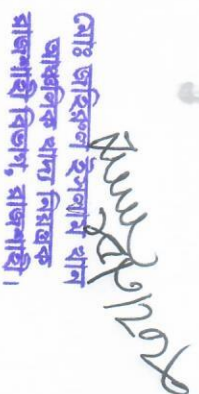 মোঃ জহিরুল ইসলাম খান
আঞ্চলিক খাদ্য নিয়ন্ত্রক
রাজশাহী বিভাগ, রাজশাহী।